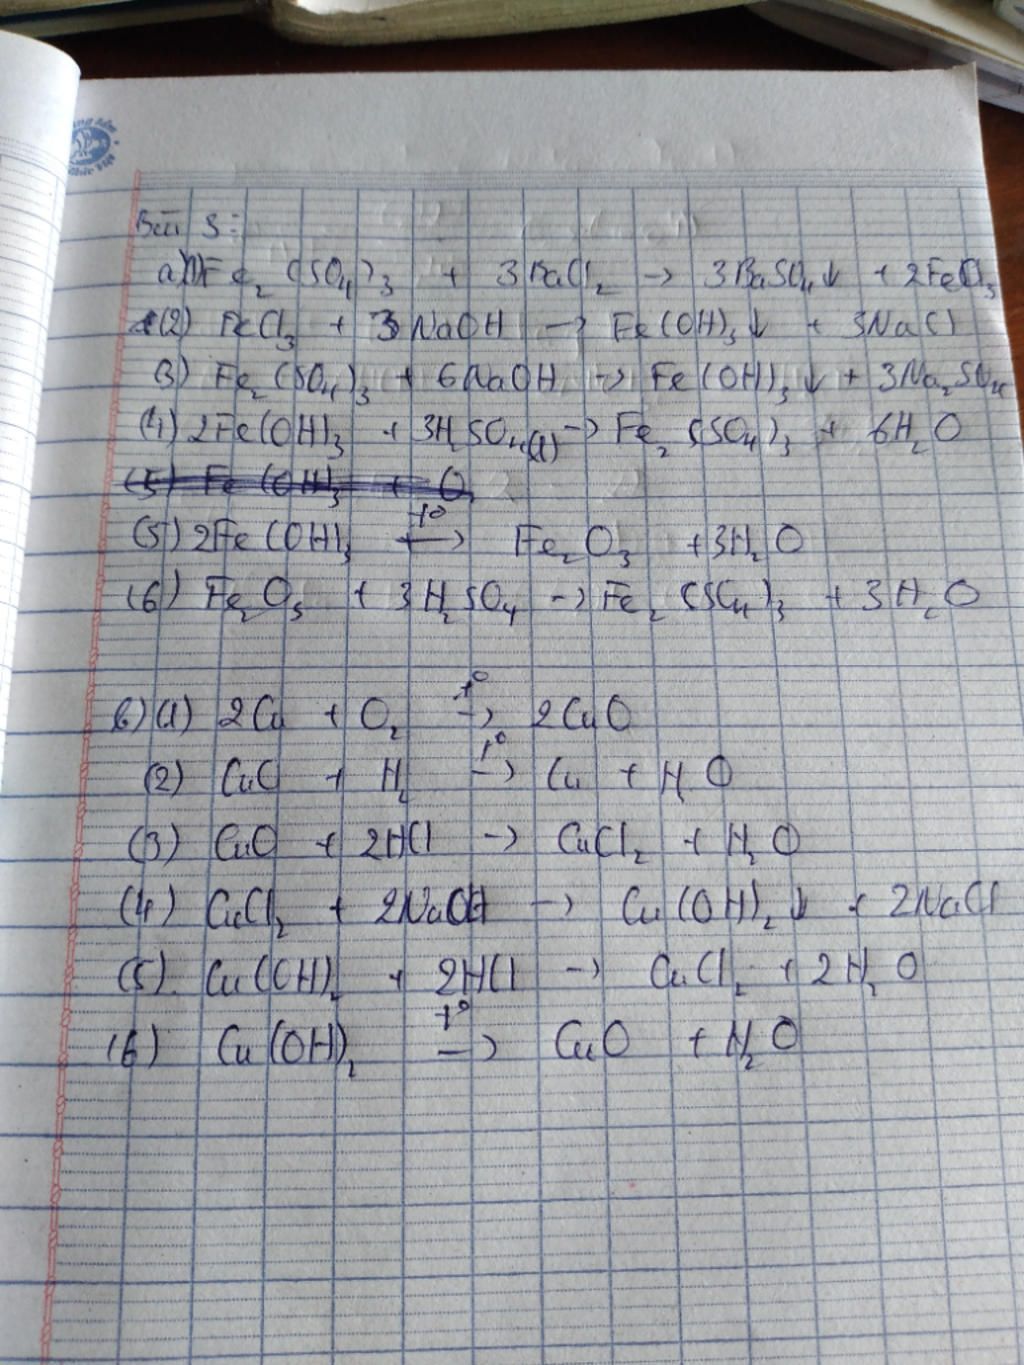 Bài 3:
a)(1) Fe₂(SO₄)₃ + 3BaCl₂ → 3BaSO₄↓ + 2FeCl₃
(2) FeCl₃ + 3NaOH → Fe(OH)₃↓ + 3NaCl
(3) Fe₂(SO₄)₃ + 6NaOH → Fe(OH)₃↓ + 3Na₂SO₄
(4) 2Fe(OH)₃ + 3H₂SO₄(l) → Fe₂(SO₄)₃ + 6H₂O
(5) Fe(OH)₃ + O₂
(5) 2Fe(OH)₃ t° → Fe₂O₃ + 3H₂O
(6) Fe₂O₃ + 3H₂SO₄ → Fe₂(SO₄)₃ + 3H₂O
b)(1) 2Cu + O₂ t° → 2CuO
(2) CuO + H₂ t° → Cu + H₂O
(3) CuO + 2HCl → CuCl₂ + H₂O
(4) CuCl₂ + 2NaOH → Cu(OH)₂↓ + 2NaCl
(5) Cu(OH)₂ + 2HCl → CuCl₂ + 2H₂O
(6) Cu(OH)₂ t° → CuO + H₂O